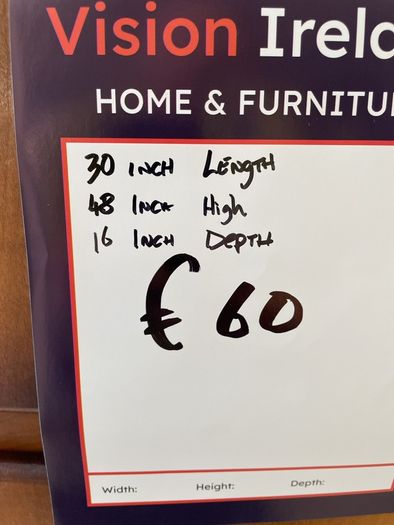 Vision Irela
HOME & FURNITU
30 INCH LENGTH
48 INCH High
16 INCH DEPTH
€ 60
Width: Height: Depth: